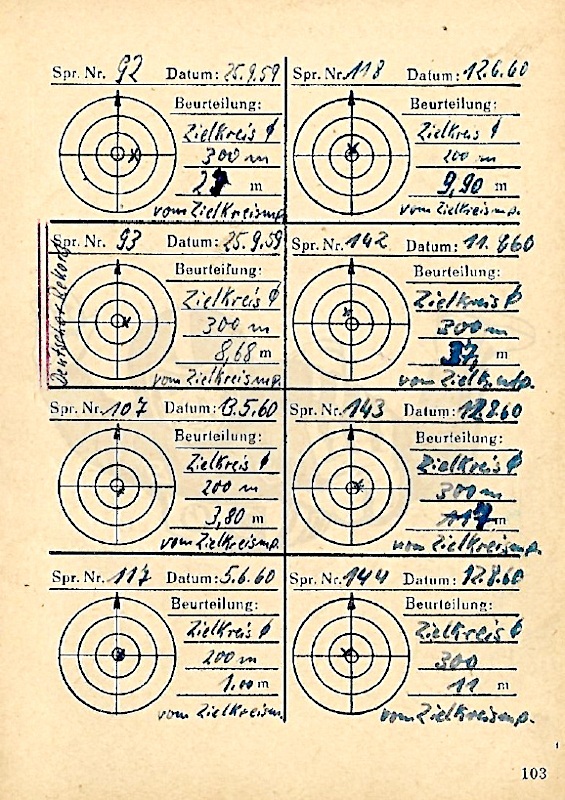 Spr. Nr. 92 Datum: 25.9.59
Beurteilung:
Zielkreis ϕ
300 m
m
vom Zielkreismp.
Deutscher Rekord
Spr. Nr. 93 Datum: 25.9.59
Beurteilung:
Zielkreis ϕ
300 m
8,68 m
vom Zielkreismp.
Spr. Nr. 107 Datum: 13.5.60
Beurteilung:
Zielkreis ϕ
200 m
3,80 m
vom Zielkreismp.
Spr. Nr. 117 Datum: 5.6.60
Beurteilung:
Zielkreis ϕ
200 m
1,00 m
vom Zielkreism.
Spr. Nr. 118 Datum: 12.6.60
Beurteilung:
Zielkreis ϕ
200 m
9,90 m
vom Zielkreismp.
Spr. Nr. 142 Datum: 11.8.60
Beurteilung:
Zielkreis ϕ
300 m
m
vom
Spr. Nr. 143 Datum: 12.8.60
Beurteilung:
Zielkreis ϕ
300 m
m
vom Zielkreismp.
Spr. Nr. 144 Datum: 12.8.60
Beurteilung:
Zielkreis ϕ
300
11 m
vom Zielkreismp.
103